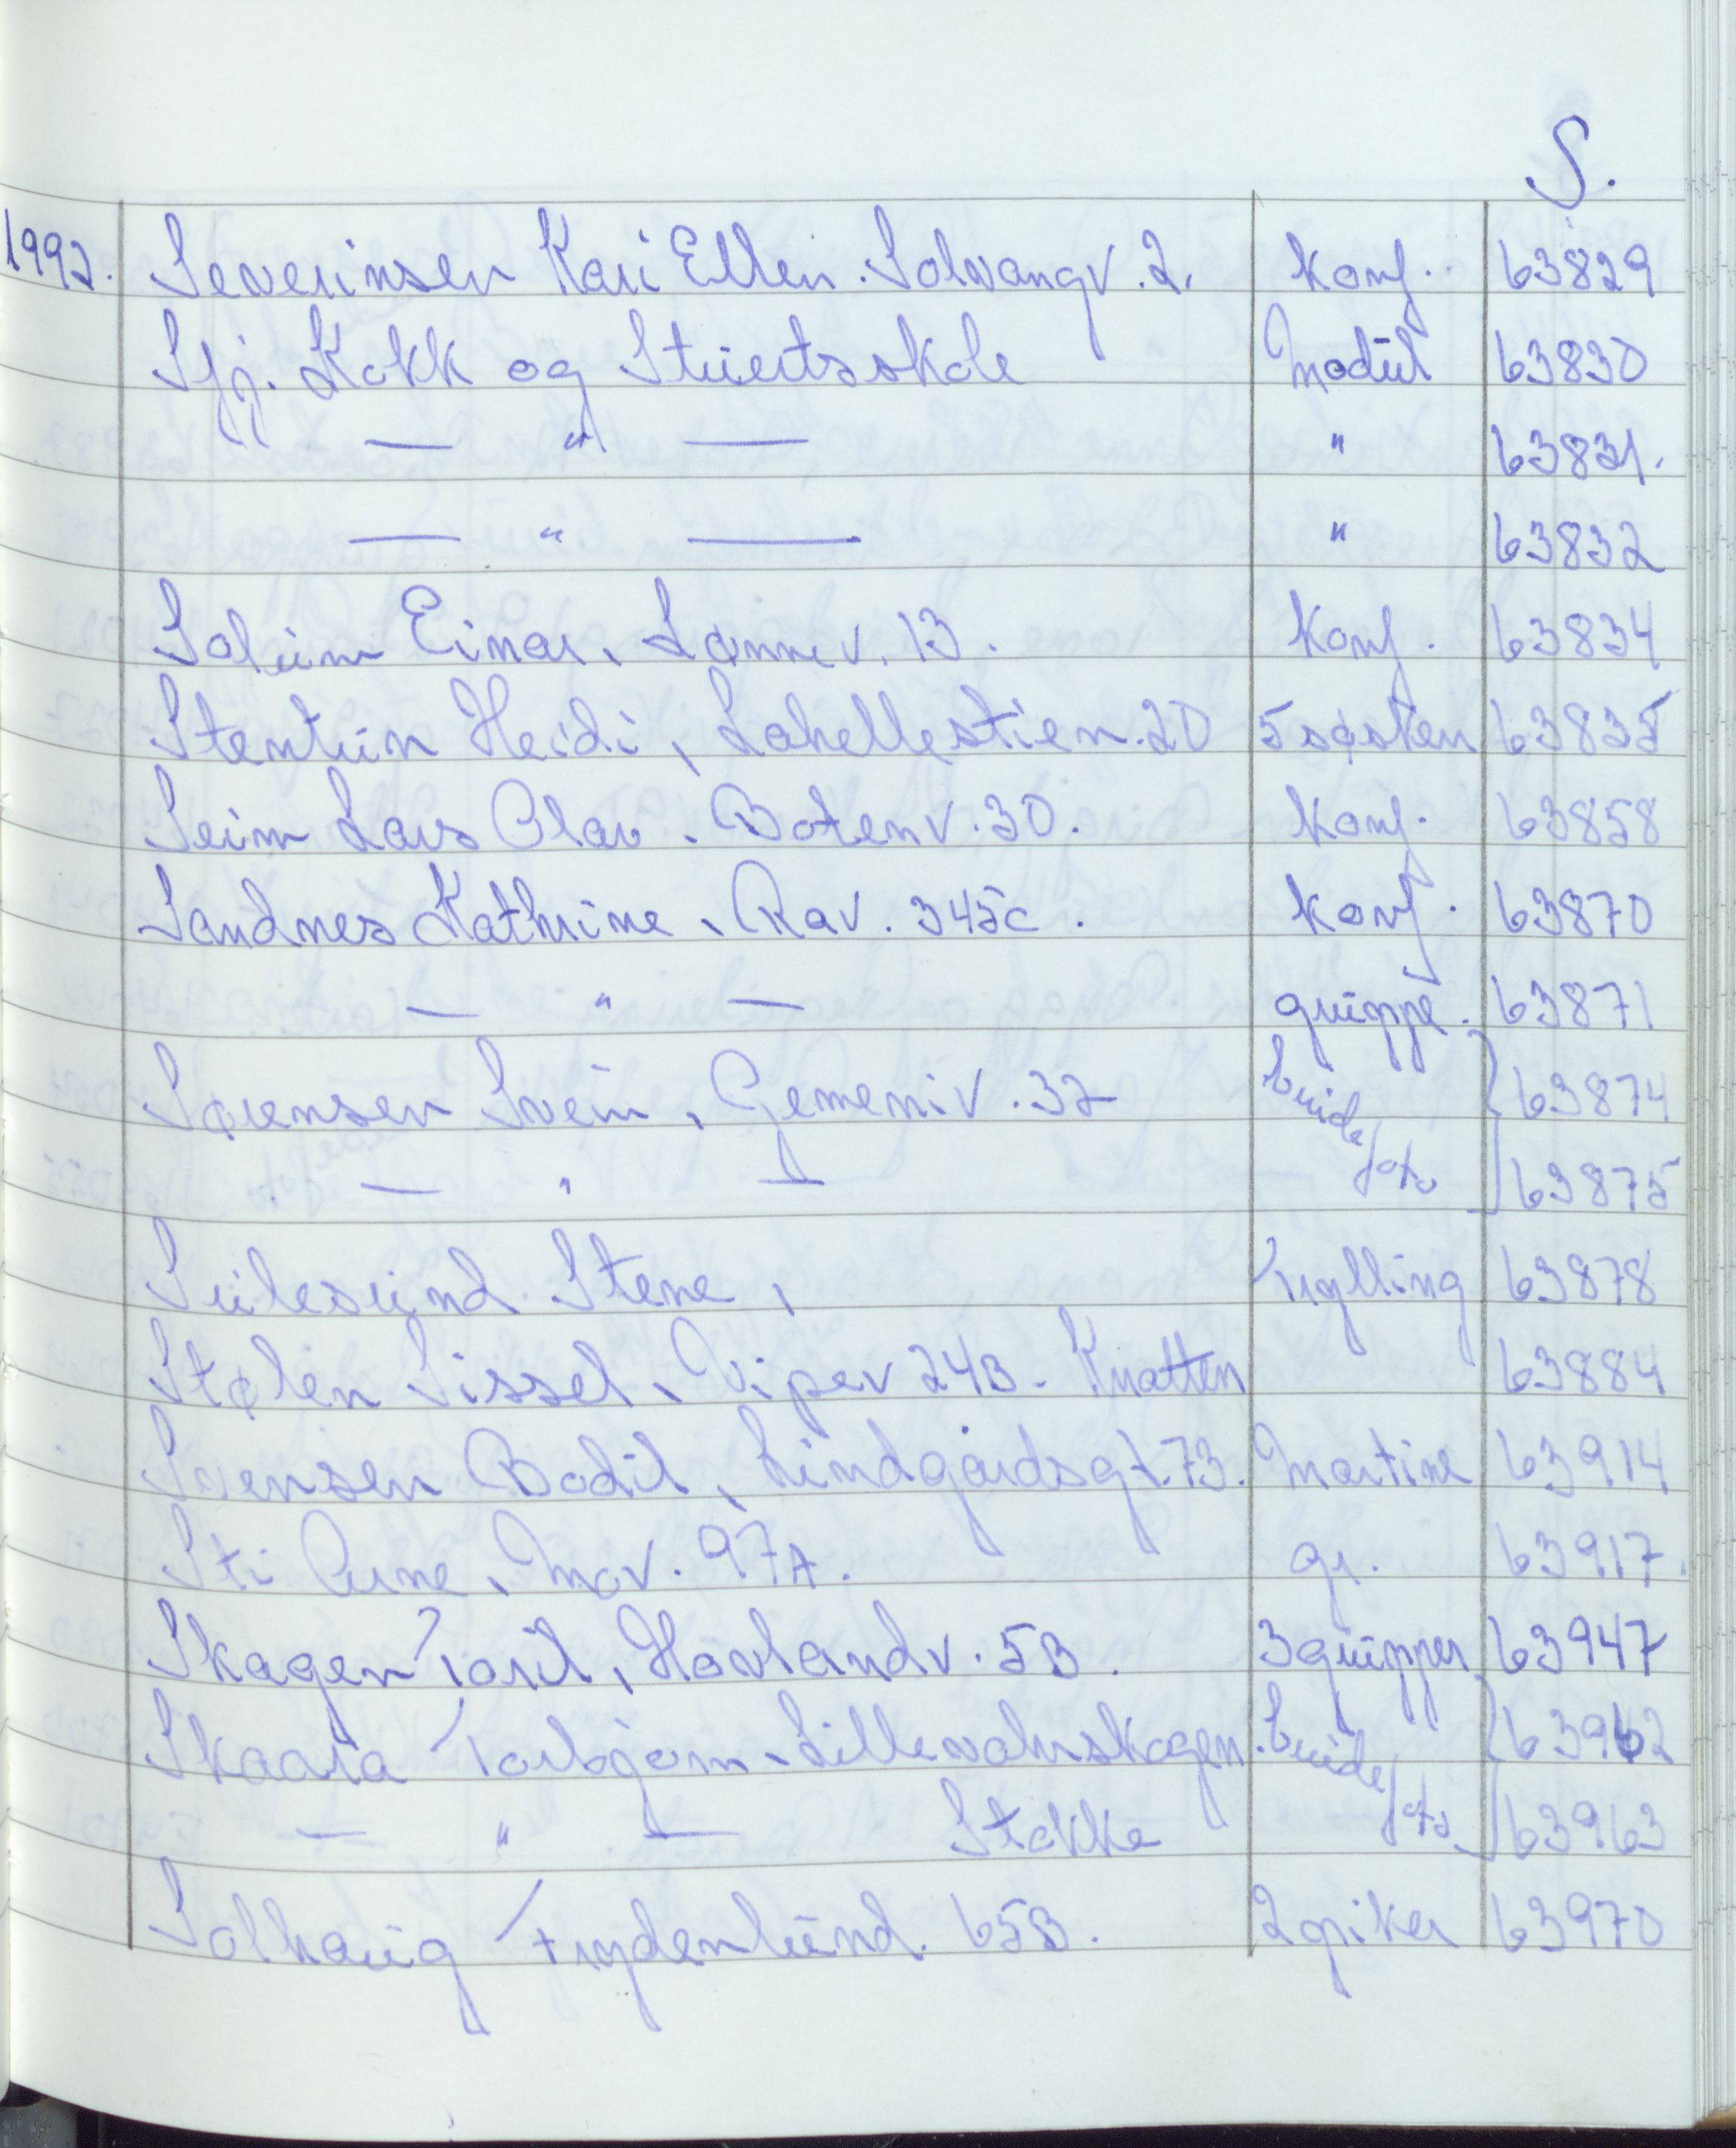 S.
1992. Severinsen Kari Ellen. Solvangv. 2. Konf. 63829
Sfj. Kokk og Stuertsskole Modul 63830
— " — " 63831.
— " — " 63832
Solum Einar, Lønnev. 13. Konf. 63834
Stentun Heidi, Lahellestien. 20 5 søsken 63835
Seim Lars Olav. Botenv. 30. Konf. 63858
Sandnes Kathrine, Rav. 345c. konf. 63870
— " — gruppe. 63871
Sørensen Svein, Gemeniv. 32 brude 63874
— " — foto 63875
Sulesund Stene, kylling 63878
Stølen Sissel, Vipev 24B. Knatten 63884
Svensen Bodil, Lindgårdsgt. 73. Martine 63914
Sti Arne, Mov. 97A. gr. 63917.
Skagen Toril, Hovlandv. 5B. 3 grupper 63947
Skaara Torbjørn, Lillevahrskogen. brude 63962
— " — Stokke foto 63963
Solhaug Frydenlund. 65B. 2 piker 63970